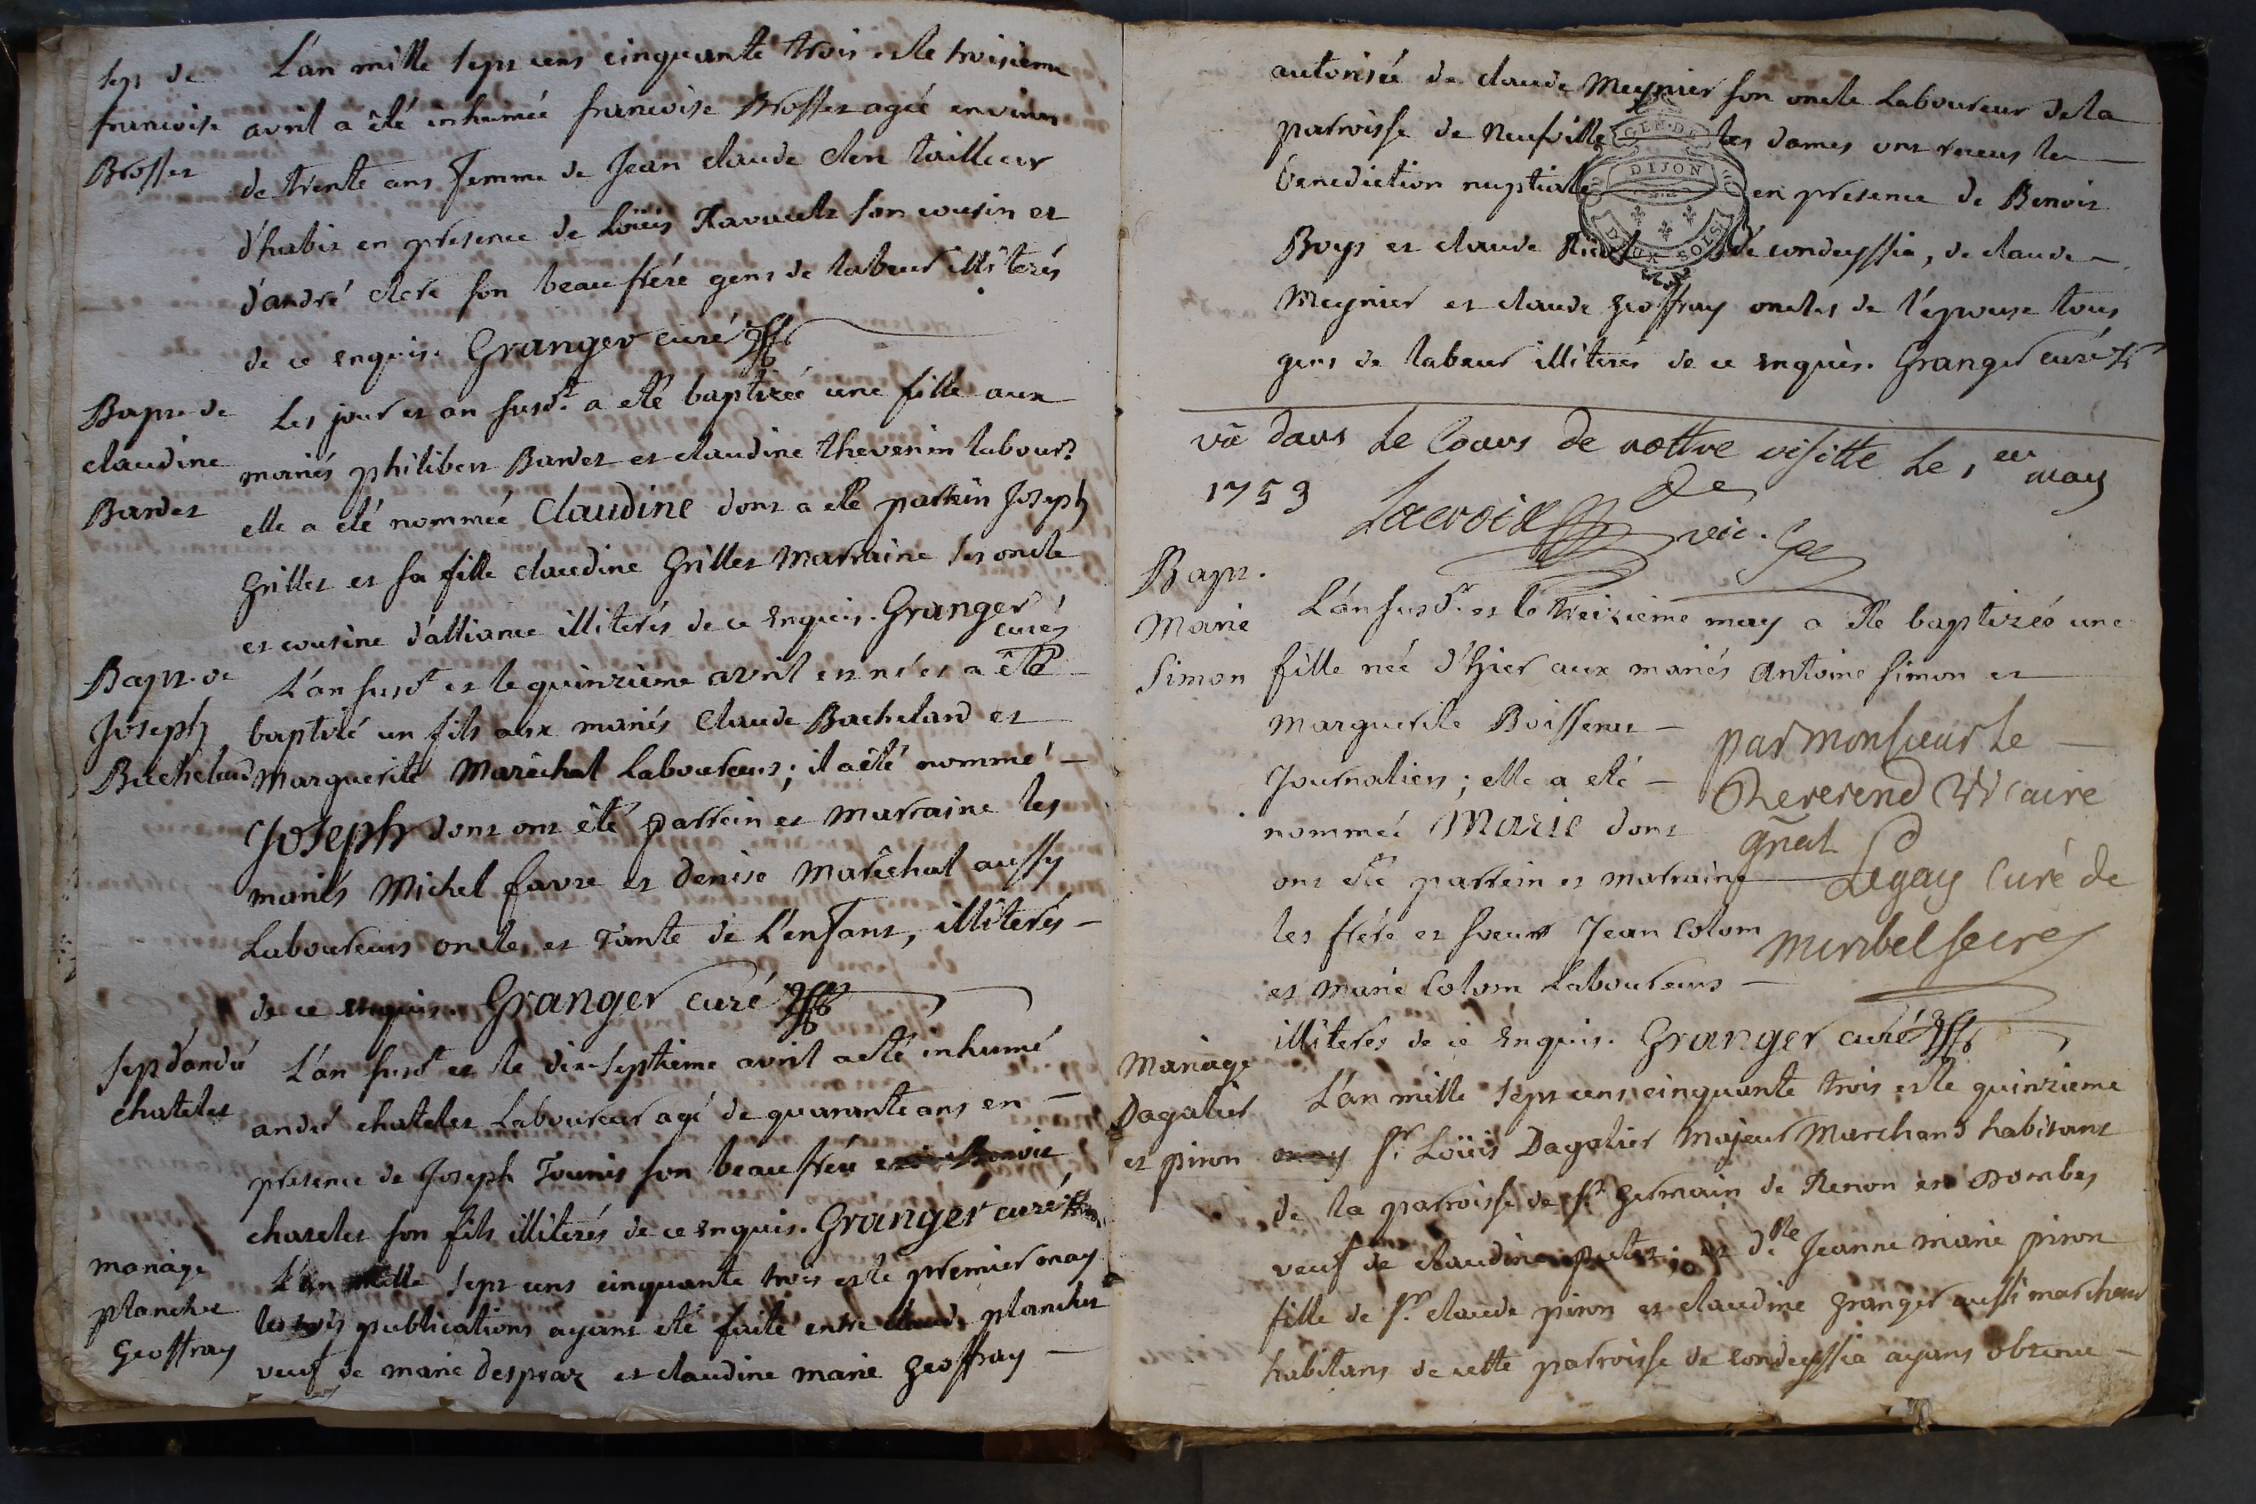 Sep de
francoise
Brosset
L'an mille sept cens cinquante trois et le troisieme
avril a été inhumée francoise Brosset agée environ
de trente ans femme de Jean claude clere tailleur
d'habit en presence de Loüis Ravault son cousin et
d'andré clere son beaufrére gens de labeur illiterés
de ce enquis. Granger curé
Bapt. de
claudine
Bardet
Les jour et an susd.t a eté baptizeé une fille aux
mariés philibert Bardet et claudine thevenin labour.rs
elle a eté nommée Claudine dont a eté parrein Joseph
Grillet et sa fille claudine Grillet marraine ses oncle
et cousine d'alliance illiterés de ce enquis. Granger
curé
Bapt. de
Joseph
Bachelard
L'an susd.t et le quinzieme avril est né et a êté
baptizé un fils aux mariés Claude Bachelard et
Marguerite Maréchal Laboureurs; il a eté nommé
Joseph dont ont êté parrein et marraine les
mariés Michel favre et Denise Maréchal aussy
Laboureurs oncle et Tante de L'enfant, illiterés
de ce enquis. Granger curé
Sep d'andré
chatelet
L'an susd.t et le dix-septieme avril a eté inhumé
andré chatelet Laboureur agé de quarante ans en
presence de Joseph Tournis son beaufrére Benoit
chatelet son fils illiterés de ce enquis. Granger curé
mariage
planchet
Geoffray
L'an mille sept cens cinquante trois et le premier may
les trois publications ayant eté faite entre claude planchet
veuf de marie Despraz et claudine marie Geoffray
autorisée de claude Meynier son oncle Laboureur de la
parroisse de Neufville les dames ont receus la
benediction nuptiale en presence de Benoit
Boys et claude de condeyssia, de claude
Meynier et claude Geoffray oncles de l'épouse tous
gens de labeur illiterés de ce enquis. Granger curé
GEN. DE
DIJON
DEUX SOLS
vû dans Le Cours de nottre visitte Le 1er may
1753 Lacroix vic. Gal
De
Bapt.
Marie
Simon
L'an susd.t et le treizieme may a eté baptizée une
fille née d'hier aux mariés Antoine Simon et
marguerite Boisseret
Journaliers; elle a eté
nommée Marie dont
ont eté parrein et marraine
les frére et soeur Jean Colom
et marie Colom Laboureurs
illiterés de ce enquis. Granger curé
par monsieur le
Reverend Vicaire
gñal
Legay Curé de
Miribel secre
Mariage
Dagalier
et piron
L'an mille sept cens cinquante trois et le quinzieme
may s.r Loüis Dagalier Majeur Marchand habitant
de la parroisse de S.t Germain de Renon en Dombes
veuf de claudine et d.lle Jeanne marie piron
fille de s.r claude piron et claudine Granger aussi marchand
habitans de cette parroisse de condeyssia ayant obtenu